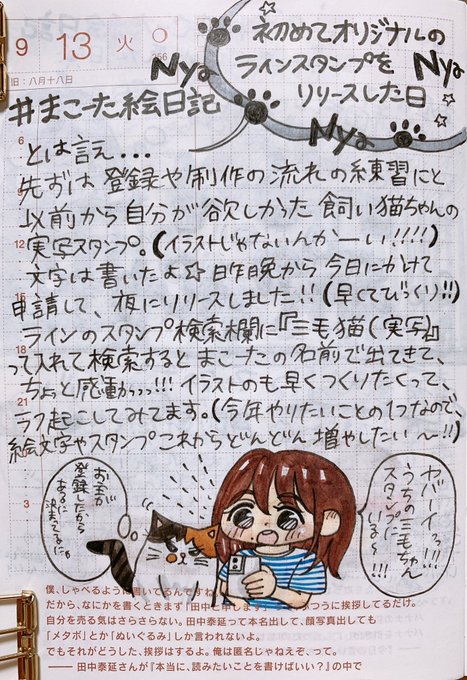 9 13 火 〇
256
旧：八月十八日
初めてオリジナルの
ラインスタンプを
リリースした日
Nya
Nya
Nya
#まこーた絵日記
6
とは言え...
先ずは登録や制作の流れの練習にと
以前から自分が欲しかった飼い猫ちゃんの
12
実写スタンプ。(イラストじゃないんかーい!!!!)
文字は書いたよ☆ 昨晩から今日にかけて
申請して、夜にリリースしました!! (早くてびっくり!!)
ラインのスタンプ検索欄に『三毛猫(実写)』
18
って入れて検索するとまこーたの名前で出てきて、
ちょっと感動っっっ!!! イラストのも早くつくりたくって、
21
ラフ起こしてみてます。(今年やりたいことの1つなので、
絵文字やスタンプこれからどんどん増やしたい〜!!)
3
お主が
登録したから
あるに
決まってるにゃ
ヤバーイっ!!!
うちの三毛ちゃん
スタンプに
いる〜!!!
僕、しゃべるように書いてるんですね
だから、なにかを書くときまず「田中と申します」
ふつうに挨拶してるだけ。
自分を売る気はさらさらない。田中泰延って本名出して、顔写真出しても
「メタボ」とか「ぬいぐるみ」しか言われないよ。
でもそれがどうした、挨拶はするよ。俺は匿名じゃねえぞ、って。
── 田中泰延さんが『本当に、読みたいことを書けばいい？』の中で